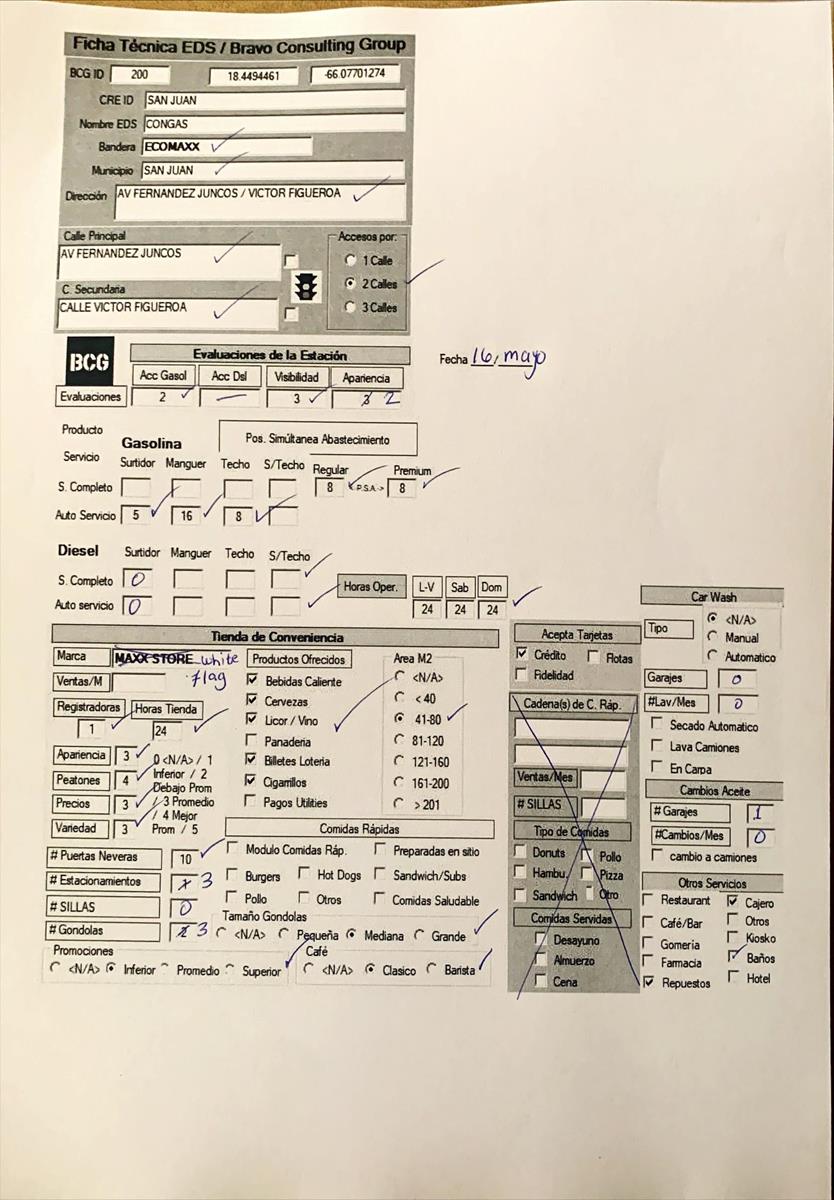 Ficha Técnica EDS / Bravo Consulting Group
BCG ID 200 18.4494461 -66.07701274
CRE ID SAN JUAN
Nombre EDS CONGAS
Bandera ECOMAXX
Municipio SAN JUAN
Dirección AV FERNANDEZ JUNCOS / VICTOR FIGUEROA
Calle Principal
AV FERNANDEZ JUNCOS
C. Secundaria
CALLE VICTOR FIGUEROA
Accesos por:
1 Calle
2 Calles
3 Calles
BCG Evaluaciones de la Estación
Fecha 16, mayo
Acc Gasol Acc Dsl Visibilidad Apariencia
Evaluaciones 2 — 3 3 2
Producto Gasolina Pos. Simúltanea Abastecimiento
Servicio Surtidor Manguer Techo S/Techo Regular Premium
S. Completo 8 <-P.S.A.-> 8
Auto Servicio 5 16 8
Diesel Surtidor Manguer Techo S/Techo
S. Completo 0
Auto servicio 0
Horas Oper. L-V Sab Dom
24 24 24
Tienda de Conveniencia
Marca MAXX STORE white flag
Ventas/M
Registradoras Horas Tienda
1 24
Apariencia 3
Peatones 4
Precios 3
Variedad 3
0 <N/A> / 1
Inferior / 2
Debajo Prom
/ 3 Promedio
/ 4 Mejor
Prom / 5
# Puertas Neveras 10
# Estacionamientos 3
# SILLAS 0
# Gondolas 3
Productos Ofrecidos
Bebidas Caliente
Cervezas
Licor / Vino
Panaderia
Billetes Loteria
Cigarrillos
Pagos Utilities
Area M2
<N/A>
< 40
41-80
81-120
121-160
161-200
> 201
Comidas Rápidas
Modulo Comidas Ráp. Preparadas en sitio
Burgers Hot Dogs Sandwich/Subs
Pollo Otros Comidas Saludable
Tamaño Gondolas
<N/A> Pequeña Mediana Grande
Promociones
<N/A> Inferior Promedio Superior
Café
<N/A> Clasico Barista
Acepta Tarjetas
Crédito Flotas
Fidelidad
Cadena(s) de C. Ráp.
Ventas/Mes
# SILLAS
Tipo de Comidas
Donuts Pollo
Hambu. Pizza
Sandwich Otro
Comidas Servidas
Desayuno
Almuerzo
Cena
Car Wash
Tipo <N/A>
Manual
Automatico
Garajes 0
#Lav/Mes 0
Secado Automatico
Lava Camiones
En Carpa
Cambios Aceite
# Garajes 1
#Cambios/Mes 0
cambio a camiones
Otros Servicios
Restaurant Cajero
Café/Bar Otros
Gomeria Kiosko
Farmacia Baños
Repuestos Hotel